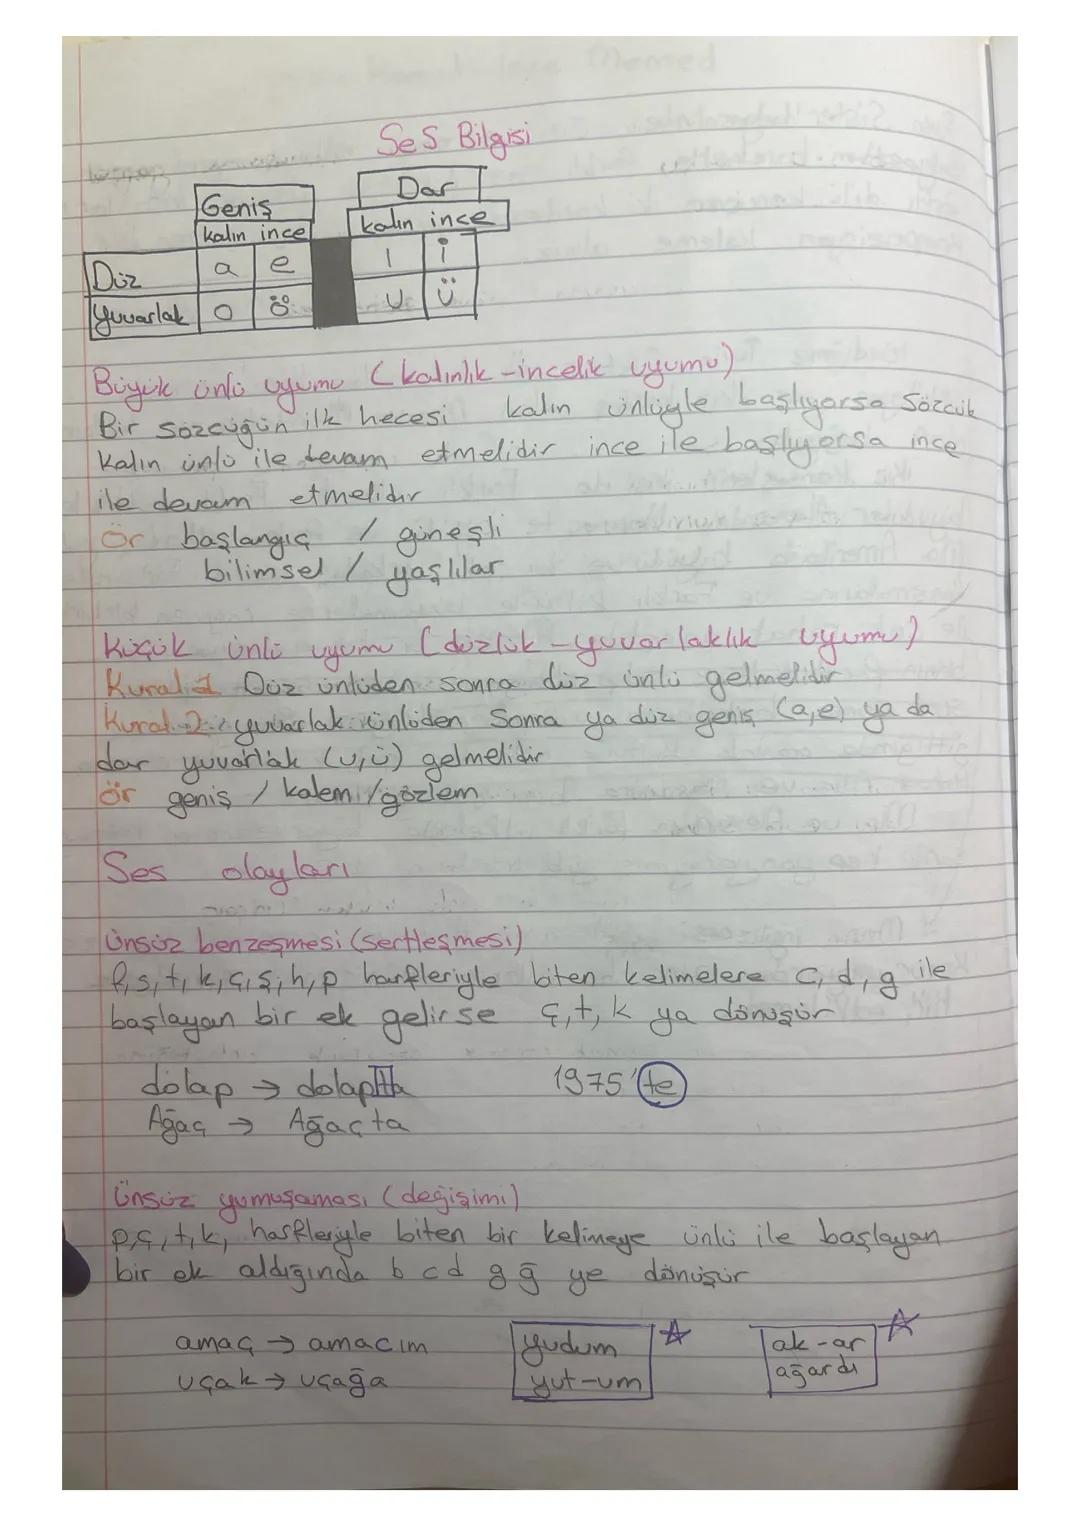 Ses Bilgisi
Geniş Dar
kalın ince kalın ince
Düz a e ı i
Yuvarlak o ö u ü
Büyük ünlü uyumu (kalınlık-incelik uyumu)
Bir sözcüğün ilk hecesi kalın ünlüyle başlıyorsa Sözcük
kalın ünlü ile devam etmelidir ince ile başlıyorsa ince
ile devam etmelidir
Ör başlangıç / güneşli
bilimsel / yaşlılar
Küçük ünlü uyumu (düzlük-yuvarlaklık uyumu)
Kural 1 Düz ünlüden sonra düz ünlü gelmelidir
Kural 2: yuvarlak ünlüden Sonra ya düz geniş (a,e) ya da
dar yuvarlak (u,ü) gelmelidir
ör geniş / kalem / gözlem
Ses olayları
Ünsüz benzeşmesi (sertleşmesi)
f, s, t, k, ç, ş, h, p harfleriyle biten kelimelere c, d, g ile
başlayan bir ek gelirse ç, t, k ya dönüşür
dolap → dolapta 1975'te
Ağaç → Ağaçta
Ünsüz yumuşaması (değişimi)
p, ç, t, k, harfleriyle biten bir kelimeye ünlü ile başlayan
bir ek aldığında b c d g ğ ye dönüşür
amaç → amacım yudum ak-ar
uçak → uçağa yut-um ağardı